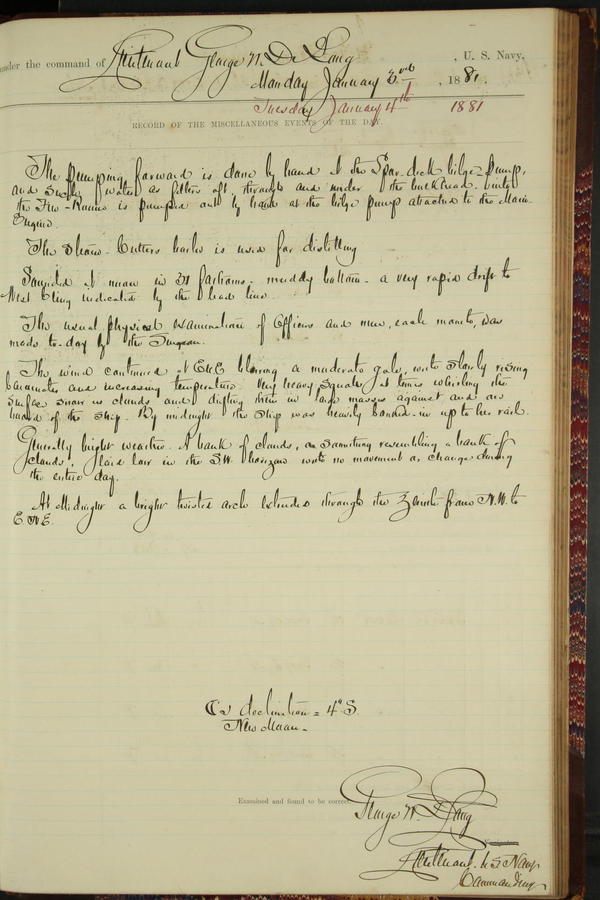 under the command of Lieutenant George W. De Long, U. S. Navy.
Monday January 3rd, 1881.
Tuesday January 4th 1881
RECORD OF THE MISCELLANEOUS EVENTS OF THE DAY.
The pumping forward is done by hand at the Spar-deck bilge-pump,
and such water as filters aft, through and under the bulkhead into
the Fire-Room is pumped out by hand at the bilge pump attached to the Main
Engine.
The Steam-Cutters boiler is used for distilling
Sounded at noon in 31 fathoms - muddy bottom - a very rapid drift to
West being indicated by the lead line.
The usual physical examination of Officers and men, each month, was
made to-day by the Surgeon.
The wind continued at ESE blowing a moderate gale, with slowly rising
barometer and increasing temperature. Very heavy squalls at times whirling the
surface snow in clouds and drifting them in large masses against and on
board of the ship. By midnight the ship was heavily banked-in up to her rail.
Generally bright weather. A bank of clouds, or something resembling a bank of
clouds, laid low in the SW. horizon with no movement or change during
the entire day.
At Midnight a bright twisted arch extended through the Zenith from N.W. to
E.N.E.
declination = 4° S.
New Moon -
Examined and found to be correct.
George W. De Long
Lieutenant U.S. Navy
Commanding